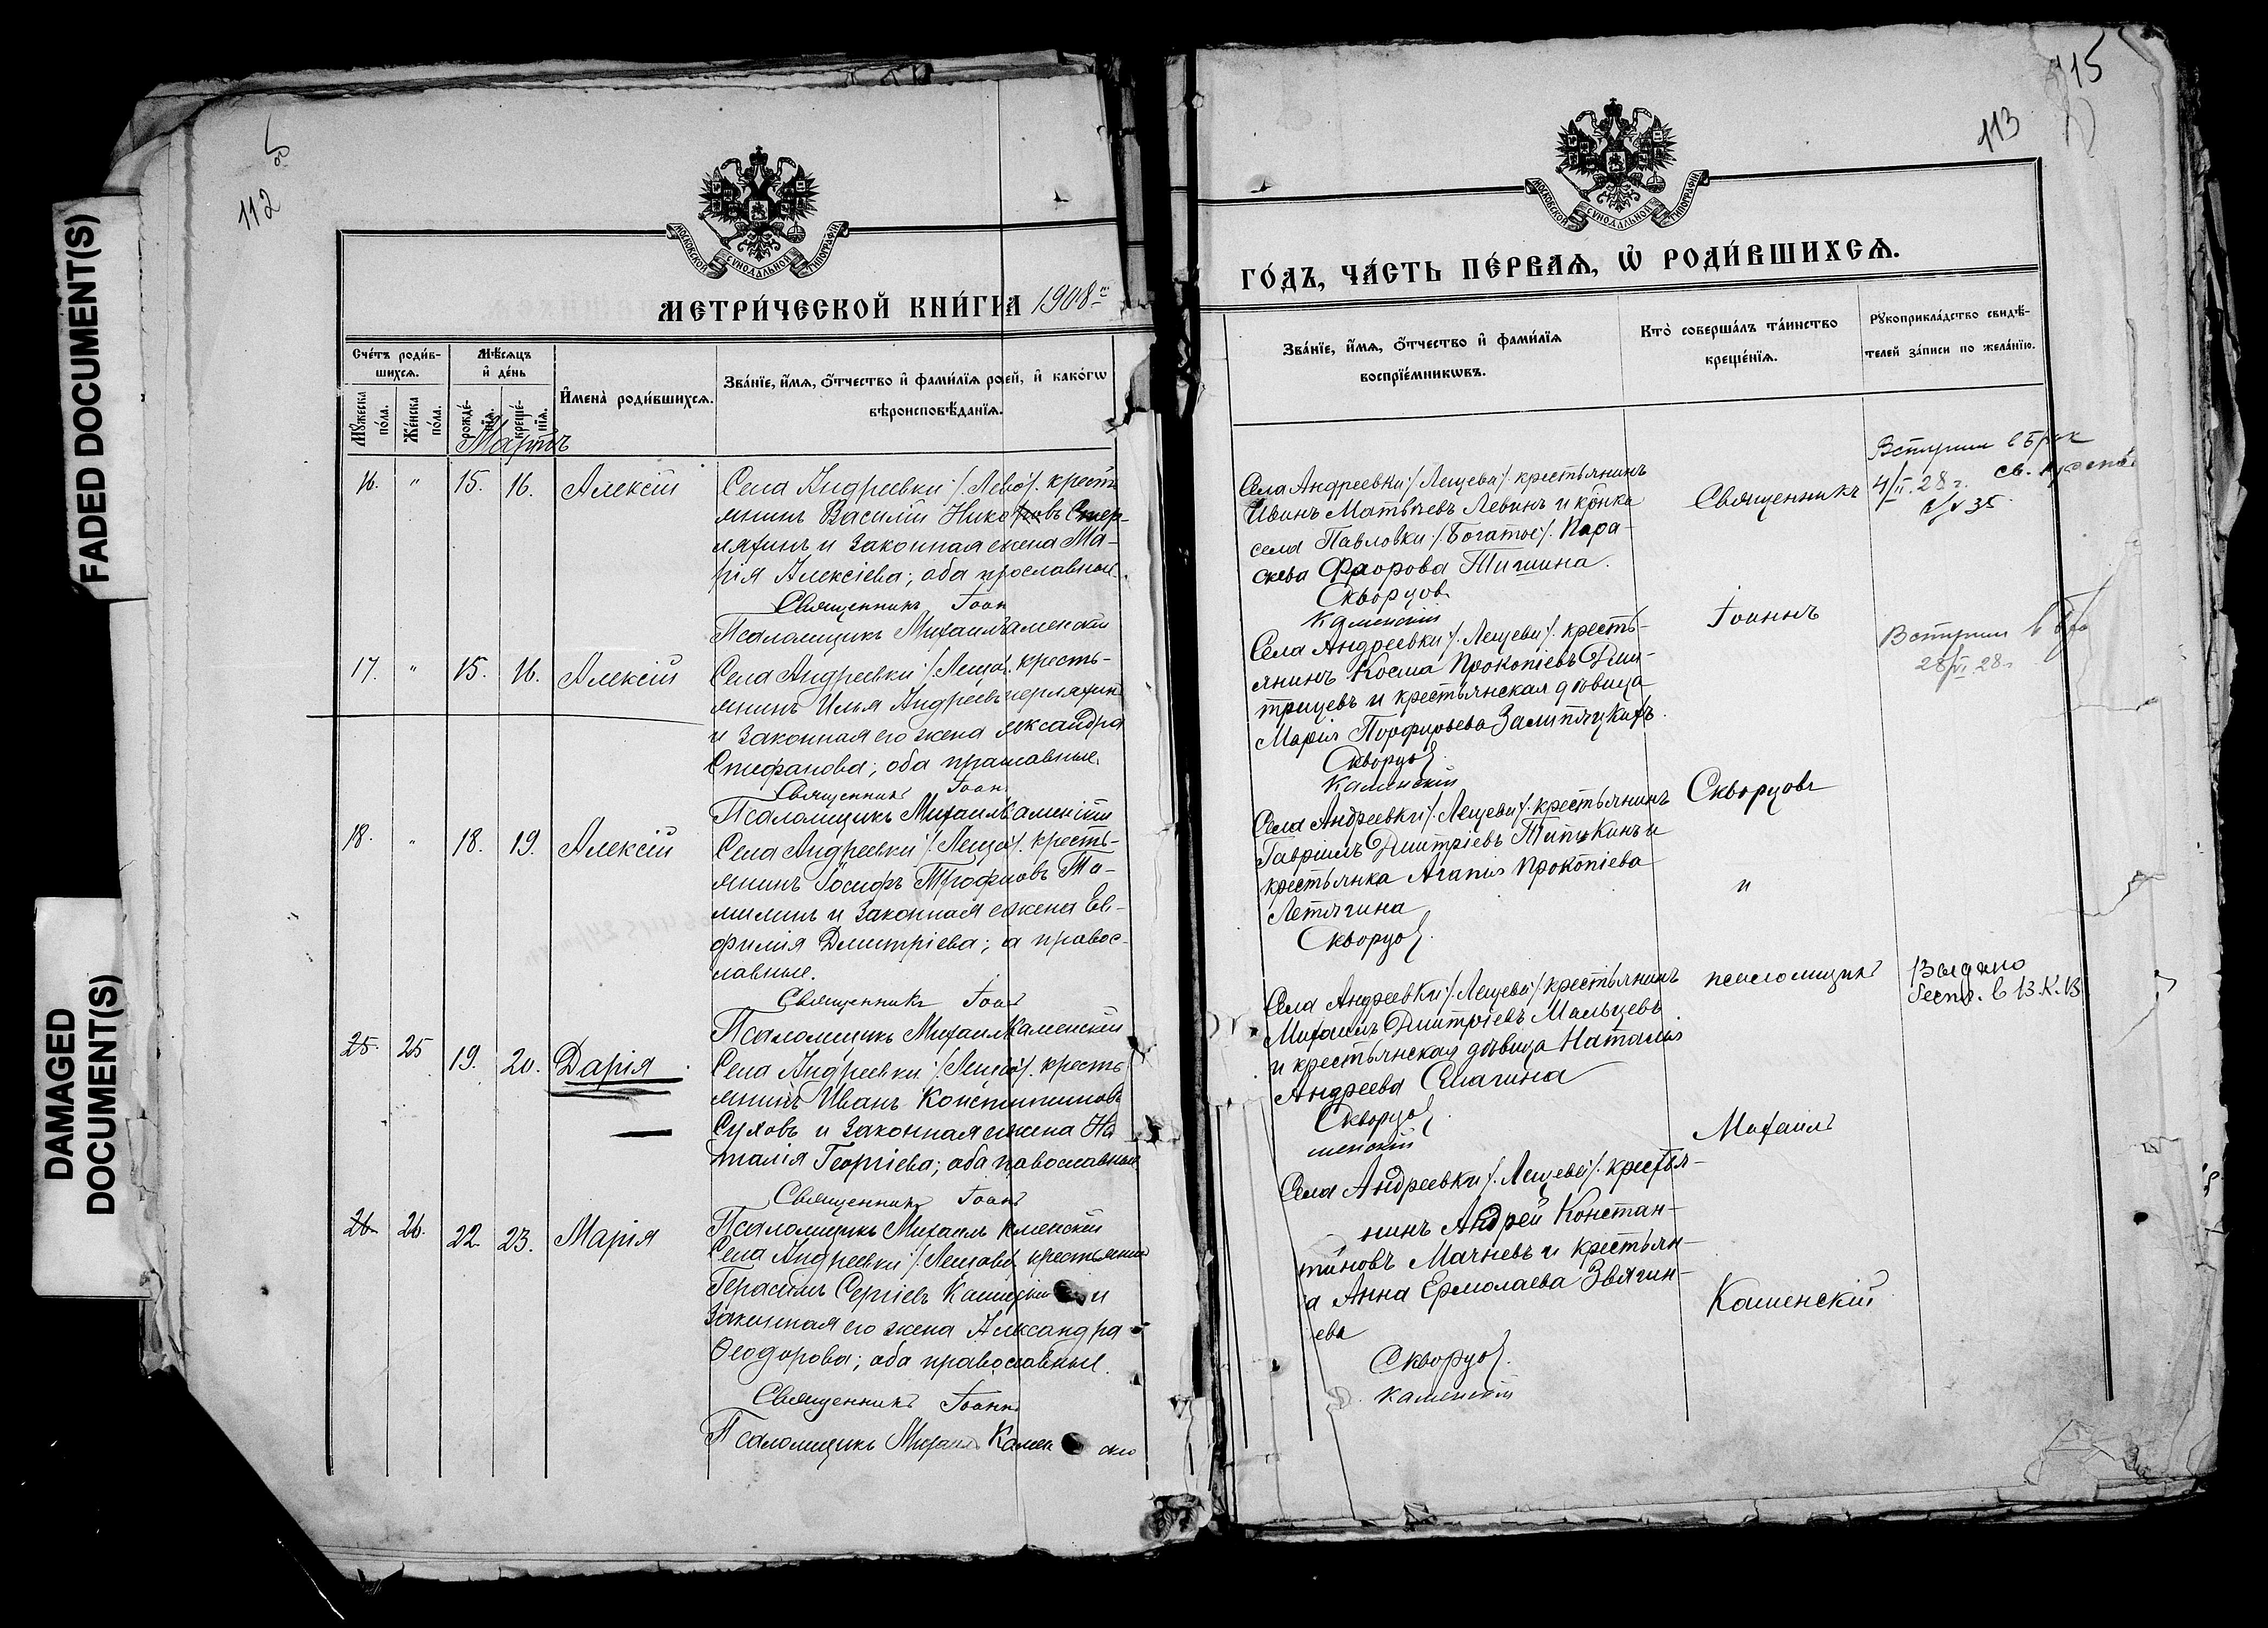 FADED DOCUMENT(S)
DAMAGED
DOCUMENT(S)
112
МОСКОВСКОЙ СѴНОДАЛЬНОЙ ТИПОГРАФІИ
МЕТРИ́ЧЕСКОЙ КНИ́ГИ НА 1908 й
Сче́тъ роди́в-
шихсѧ.
Мѣ́сѧцъ
и҆ де́нь
Мꙋ́жеска
по́ла.
Же́нска
по́ла.
рожде́-
нїѧ.
креще́-
нїѧ.
И҆мена̀ роди́вшихсѧ.
Зва́нїе, и҆́мѧ, ѻ҆́тчество и҆ фами́лїѧ роей, и҆ како́гѡ
вѣроисповѣ́данїѧ.
Мартъ
16. " 15. 16. Алексій
Села Андреевки /: Лещ :/ кресть
янинъ Василій Никоровъ Стер-
ляхинъ и законная жена Ма-
рія Алексіева; оба прославные.
Священникъ Іоан
Псаломщикъ Михаилъ аменскій
17. " 15. 16. Алексій
Села Андреевки /: Леще :/ кресть-
янинъ Илья Андреевъ терляхинъ
и законная его жена лександра
Стефанова; оба праславные.
Священникъ Іоан
Псаломщикъ Михаилъ аменскій
18. " 18. 19. Алексій
Села Андреевки /: Леще :/ кресть-
янинъ Іосифъ Трофиовъ То-
милинъ и законная ежена Ев-
фимія Димитріева; а правос-
лавные.
Священникъ Іоан
Псаломщикъ Михаилъ аменскій
25. 25 19. 20. Дарія
Села Андреевки /: Леще :/ кресть
янинъ Иванъ Константиновъ
Суховъ и законная ежена На
талія Георгіева; оба православные
Священникъ Іоанъ
26. 26. 22. 23. Марія
Псаломщикъ Михаилъ Кменскій
Села Андреевки /: Лещево :/ крестьянинъ
Герасимъ Сергіевъ и
Законная его жена Александра
Ѳеодорова; оба православные.
Священникъ Іоаннъ
Псаломщикъ Михаилъ Камен
115
113
МОСКОВСКОЙ СѴНОДАЛЬНОЙ ТИПОГРАФІИ
ГО́ДЪ, ЧА́СТЬ ПЕ́РВАѦ, Ѡ҆ РОДИ́ВШИХСѦ.
Зва́нїе, и҆́мѧ, ѻ҆́тчество и҆ фами́лїѧ
воспрїе́мникѡвъ.
Кто̀ соверша́лъ та́инство
креще́нїѧ.
Рꙋкоприкла́дство свидѣ́-
телей за́писи по жела́нїю.
Села Андреевки /: Лещеви :/ крестьянинъ
Иванъ Матвѣевъ Левинъ и крнка
села Павловки /: Богатое :/ Пара-
скева Флорова Тишина.
Скворцов
Каменскій
Священникъ
Вступил в брак
4/II. 28 г.
Села Андреевки /: Лещеви :/ кресть-
янинъ Косма Прокопіевъ Дми-
тріевъ и крестьянская дѣвица
Марія Порфирьева
Скворцов
Каменскій
Іоаннъ
Вступил в бра
28/VI 28 г
Села Андреевки /: Лещеви :/ крестьянинъ
Гавріилъ Димитріевъ Типикинъ и
крестьянка Агапія Прокопіева
Летягина
Скворцов.
Скворцовъ
и
Села Андреевки /: Лещеви :/ крестьянинъ
Михаилъ Димитріевъ Мальцевъ
и крестьянская дѣвица Наталія
Андреева Слагина
Скворцов
менскій
псаломщикъ
Выдано
Села Андреевки /: Лещеви :/ крестья-
нинъ Андрей Констан-
тиновъ Мачневъ и крестьян-
а Анна Ермолаева Звягин-
ева
Скворцов.
Каменскій
Михаилъ
Каменскій